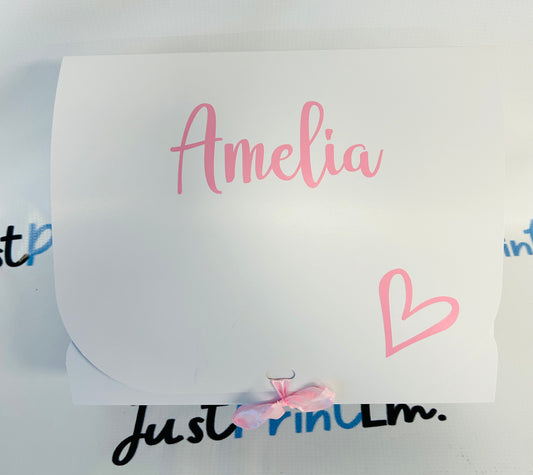 Amelia
st P
rint
JustPrintLm.